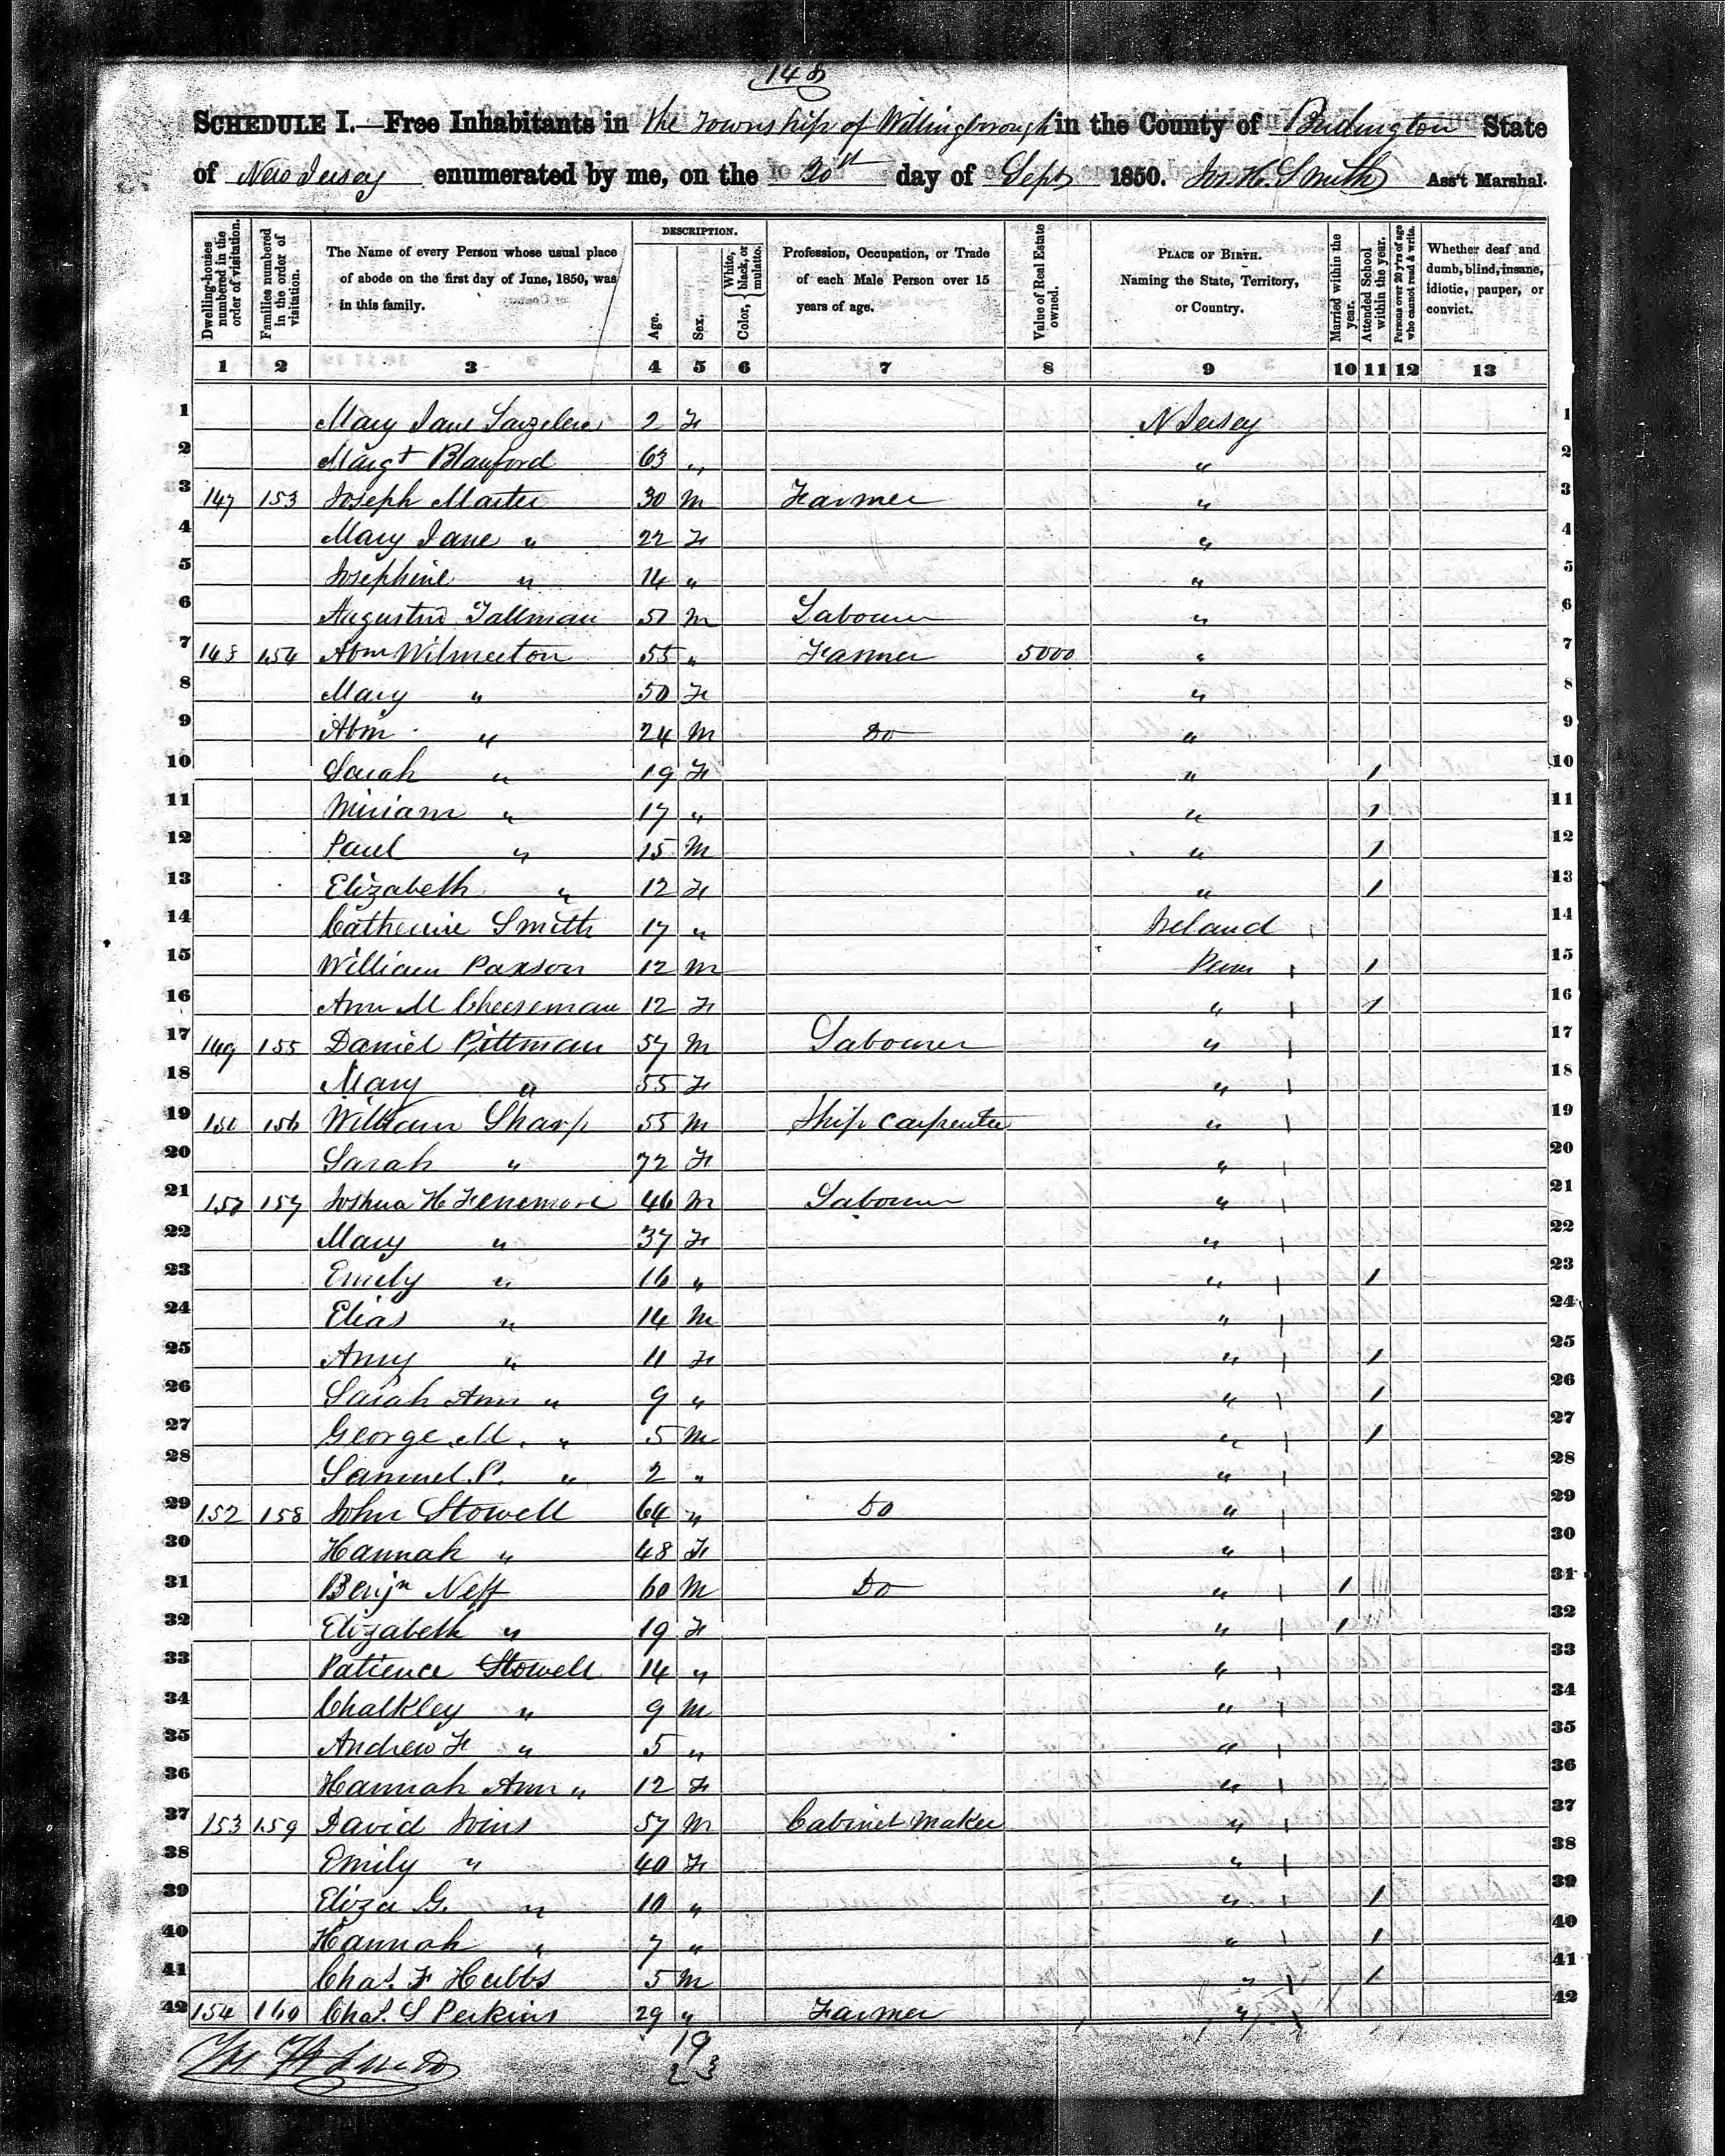 148
SCHEDULE I.—Free Inhabitants in the Township of Willingborough in the County of Burlington State
of New Jersey enumerated by me, on the 20th day of Sept 1850. Jos. H. Smith Ass't Marshal.
Dwelling-houses numbered in the order of visitation.
Families numbered in the order of visitation.
The Name of every Person whose usual place of abode on the first day of June, 1850, was in this family.
DESCRIPTION.
Age.
Sex.
Color, { White, black, or mulatto.
Profession, Occupation, or Trade of each Male Person over 15 years of age.
Value of Real Estate owned.
PLACE OF BIRTH. Naming the State, Territory, or Country.
Married within the year.
Attended School within the year.
Persons over 20 y'rs of age who cannot read & write.
Whether deaf and dumb, blind, insane, idiotic, pauper, or convict.
1 2 3 4 5 6 7 8 9 10 11 12 13
1 Mary Jane 2 F N Jersey 1
2 Margt Blanford 63 " " 2
3 147 153 Joseph Marter 30 M Farmer " 3
4 Mary Jane " 22 F " 4
5 Josephine " 14 " " 5
6 Augustus Tallman 51 M Labourer " 6
7 148 154 Abm Wilmerton 55 " Farmer 5000 " 7
8 Mary " 50 F " 8
9 Abm " 24 M Do " 9
10 Sarah " 19 F " 1 10
11 Miriam " 17 " " 1 11
12 Paul " 15 M " 1 12
13 Elizabeth " 12 F " 1 13
14 Catherine Smith 17 " Ireland 14
15 William Paxson 12 M Penn 1 15
16 Ann M Cheeseman 12 F " 1 16
17 149 155 Daniel Pittman 57 M Labourer " 17
18 Mary " 55 F " 18
19 156 William Sharp 55 M Ship Carpenter " 19
20 Sarah " 72 F " 20
21 157 Joshua H Fenemore 46 M Labourer " 21
22 Mary " 37 F " 22
23 Emily " 16 " " 1 23
24 Elias " 14 M " 24
25 Amy " 11 F " 1 25
26 Sarah Ann " 9 " " 1 26
27 George M. " 5 M " 1 27
28 Samuel P. " 2 " " 28
29 152 158 John Stowell 64 " Do " 29
30 Hannah " 48 F " 30
31 Benjn Neff 60 M Do " 1 31
32 Elizabeth " 19 F " 1 32
33 Patience Stowell 14 " " 33
34 Chalkley " 9 M " 34
35 Andrew F " 5 " " 35
36 Hannah Ann " 12 F " 36
37 153 159 David Ivins 57 M Cabinet Maker " 37
38 Emily " 40 F " 38
39 Eliza G. " 10 " " 1 39
40 Hannah " 7 " " 1 40
41 Chas. F Hubbs 5 M " 1 41
42 154 160 Chas. S Perkins 29 " Farmer " 42
19
23